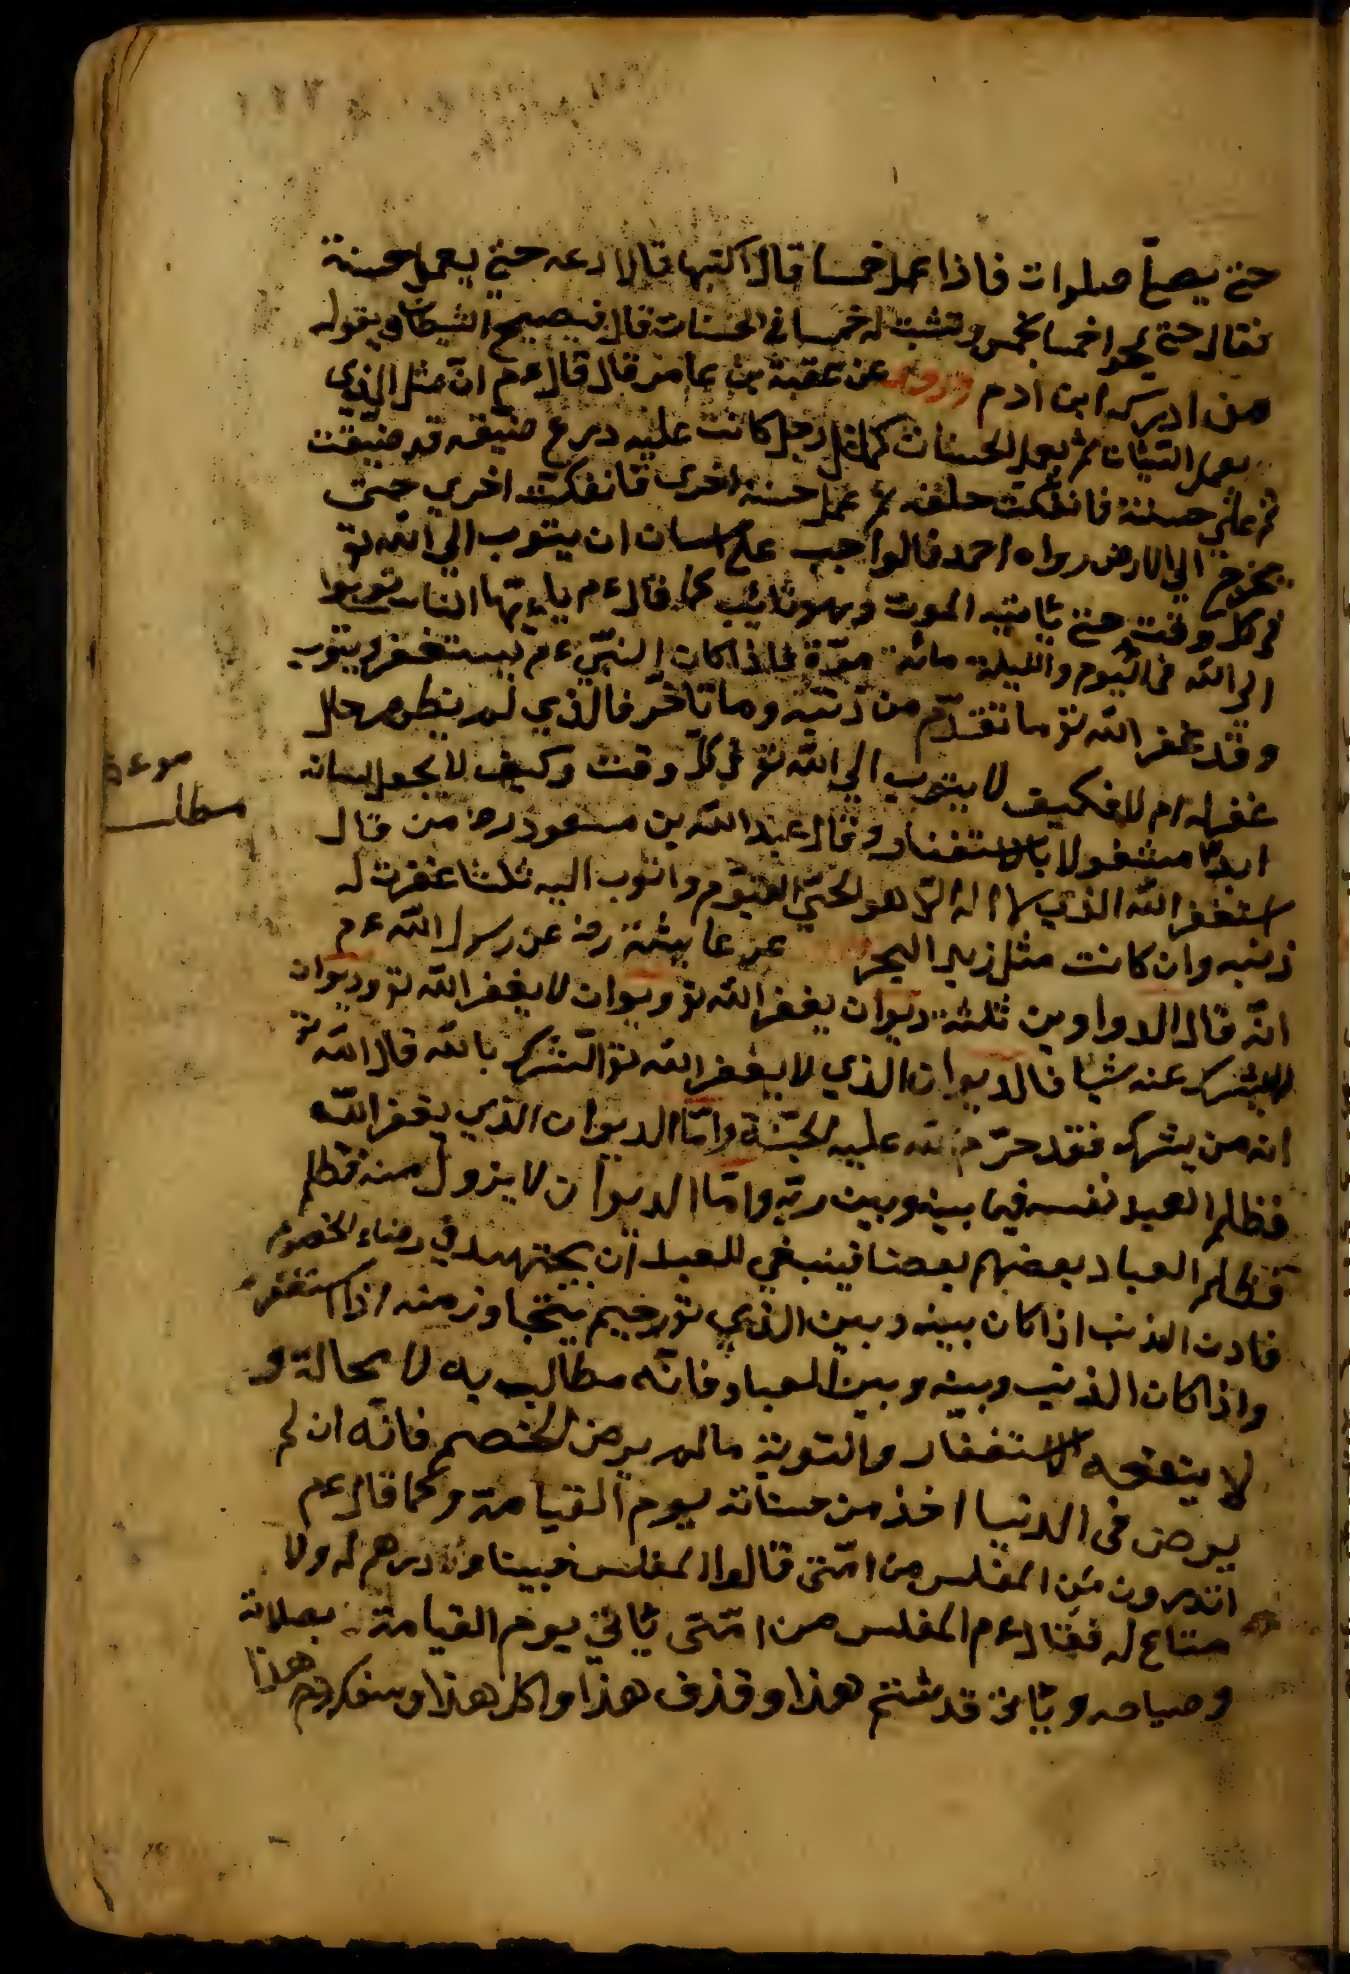 حتى يصلى صلوات فاذا عمل خمسا قال اكتبها قال لا دعه حتى يعمل حسنة
فقال حتى يمحو اخمسا بخمس وتثبت له خمسا فى الحسنات قال فيصيح الشيطان ويقول
من ادركه ابن ادم وروى عن عقبة بن عامر قال قال ءم ان مثل الذي
يعمل السيئات ثم يعمل الحسنات كمثل رجل كانت عليه درع ضيقه قد ضيقت
ثم عمل حسنة فانفكت حلقه ثم عمل حسنه اخرى فانفكت اخري حتى
يخرج الي الارض رواه احمد قالوا جب على انسان ان يتوب الي الله تع
فى كل وقت حتى ياتيه الموت وهو تائب كما قال ءم ياءيها الناس توبوا
الي الله فى اليوم والليلة مائة مرة فاذا كان النبى ءم يستغفر ويتوب
وقد غفر الله تع ما تقدم من ذنبه وما تأخر فالذي لم يظهر حال
غفر له ام لا فكيف لا يتوب الي الله تع فى كل وقت وكيف لا يجعل لسانه
ابدا مشغولا بالاستغفار وقال عبد الله بن مسعود رضه من قال
استغفر الله الذي لا اله الا هو الحي القيوم واتوب اليه ثلثا غفرت له
ذنبه وان كانت مثل زبد البحر عن عايشة رضه عن رسول الله ءم
انه قال الدواوين ثلثة ديوان يغفر الله تع وديوان لا يغفر الله تع وديوان
لا يترك عنه شيا فالديوان الذي لا يغفر الله تع الشرك بالله قال الله تع
انه من يشرك فقد حرم الله عليه الجنة واما الديوان الذي يغفر الله
فظلم العبد نفسه فيما بينه وبين ربه واما الديوان لا يزول منه فظلم
فظلم العباد بعضهم بعضا فينبغي للعبد ان يجتهد في رضاء الخصوم
فان الذنب اذا كان بينه وبين الذي تع رحيم يتجاوز منه اذا استغفره
واذا كان الذنب وبينه وبين العباد فانه مطالب به لا محالة و
لا ينفعه الاستغفار والتوبة ما لم يرض الخصم فانه ان لم
يرض فى الدنيا اخذ من حسناته يوم القيامة وكما قال ءم
اتدرون من المفلس من امتى قالوا المفلس فينا من لا درهم له ولا
متاع له فقال ءم المفلس من امتى ياتي يوم القيامة بصلاته
وصيامه وياتى قد شتم هذا وقذف هذا واكل هذا وسفك دم هذا
موعظة
مطلب